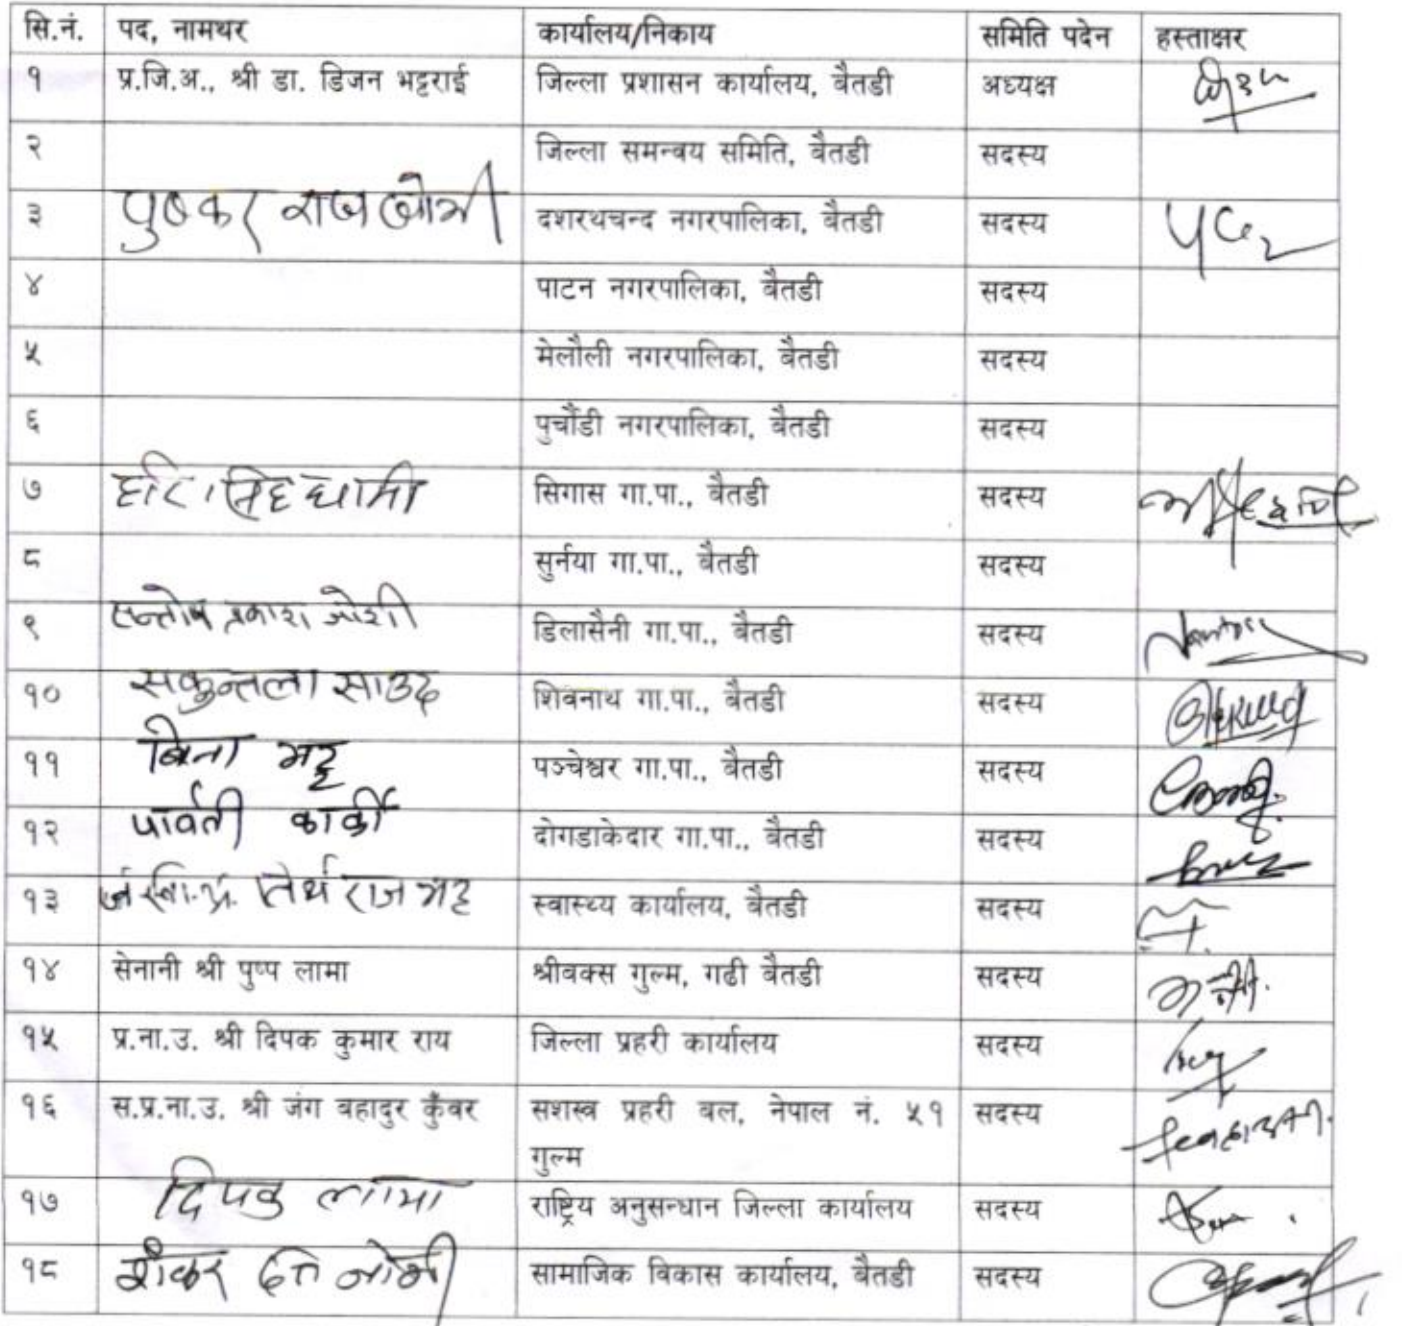 सि.नं. पद, नामथर कार्यालय/निकाय समिति पदेन हस्ताक्षर
१ प्र.जि.अ., श्री डा. डिजन भट्टराई जिल्ला प्रशासन कार्यालय, बैतडी अध्यक्ष
२ जिल्ला समन्वय समिति, बैतडी सदस्य
३ पुष्कर राज जोशी दशरथचन्द नगरपालिका, बैतडी सदस्य
४ पाटन नगरपालिका, बैतडी सदस्य
५ मेलौली नगरपालिका, बैतडी सदस्य
६ पुर्चौडी नगरपालिका, बैतडी सदस्य
७ हरि सिह धामी सिगास गा.पा., बैतडी सदस्य
८ सुर्नया गा.पा., बैतडी सदस्य
९ सन्तोष प्रकाश जोशी डिलासैनी गा.पा., बैतडी सदस्य
१० सकुन्तला साउद शिवनाथ गा.पा., बैतडी सदस्य
११ बिना भट्ट पञ्चेश्वर गा.पा., बैतडी सदस्य
१२ पार्वती कार्की दोगडाकेदार गा.पा., बैतडी सदस्य
१३ तिर्थ राज भट्ट स्वास्थ्य कार्यालय, बैतडी सदस्य
१४ सेनानी श्री पुष्प लामा श्रीवक्स गुल्म, गढी बैतडी सदस्य
१५ प्र.ना.उ. श्री दिपक कुमार राय जिल्ला प्रहरी कार्यालय सदस्य
१६ स.प्र.ना.उ. श्री जंग बहादुर कुँवर सशस्त्र प्रहरी वल, नेपाल नं. ५१ सदस्य
गुल्म
१७ दिपक लामा राष्ट्रिय अनुसन्धान जिल्ला कार्यालय सदस्य
१८ शंकर दत्त जोशी सामाजिक विकास कार्यालय, बैतडी सदस्य